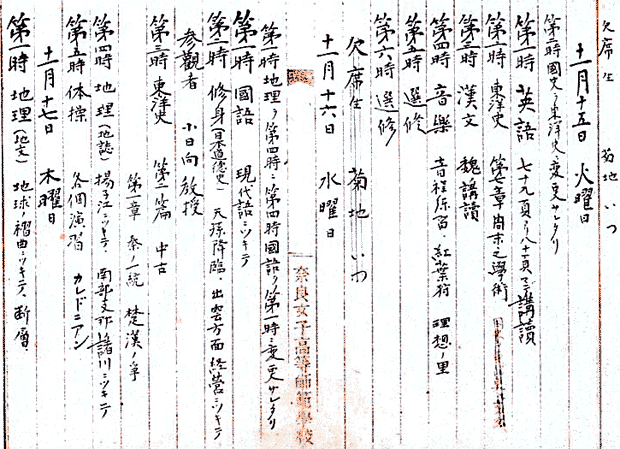 欠席生 菊地いつ
十一月十五日 火曜日
第二時國史ヲ東洋史ニ変更サレタリ
第一時 英語 七十九頁ヨリ八十一頁マデ講讀
第二時 東洋史 第六章周末之學術
第三時 漢文 魏 講讀
第四時 音樂 音程練習、紅葉狩 理想ノ里
第五時 選修
第六時 選修
欠席生 菊地いつ
十一月十六日 水曜日
奈良女子高等師範學校
第一時地理ヲ第四時ニ第四時國語ヲ第一時ニ変更サレタリ
第一時 國語 現代語ニツキテ
第二時 修身(日本道徳史) 天孫降臨、出雲方面経営ニツキテ
参觀者 小日向教授
第三時 東洋史 第二篇 中古
第一章 秦ノ一統 楚漢ノ争
第四時 地理(地誌) 揚子江ニツキテ、南部支那諸川ニツキテ
第五時 体操 各個演習 カレドニアン
十一月十七日 木曜日
第一時 地理(地文) 地球ノ褶曲ニツキテ、断層